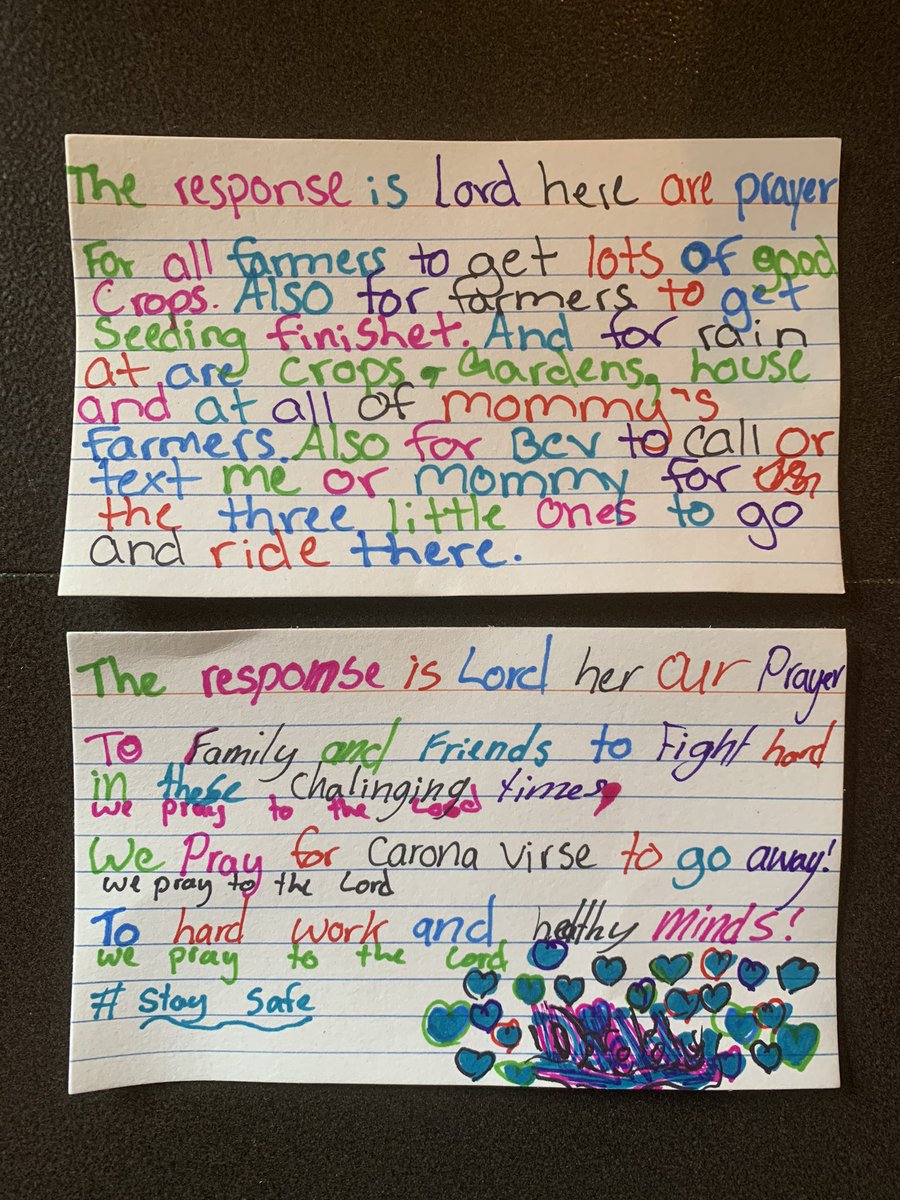 The response is Lord here are prayer
For all farmers to get lots of good
Crops. Also for farmers to get
Seeding finishet. And for rain
at are crops, Gardens, house
and at all of mommy's
farmers. Also for Bcv to call or
text me or mommy for
the three little ones to go
and ride there.
The response is Lord her our Prayer
To Family and Friends to Fight hard
in these Chalinging times,
we pray to the Lord
We Pray for Carona Virse to go away!
we pray to the Lord
To hard work and healthy Minds!
we pray to the Lord
# Stay Safe